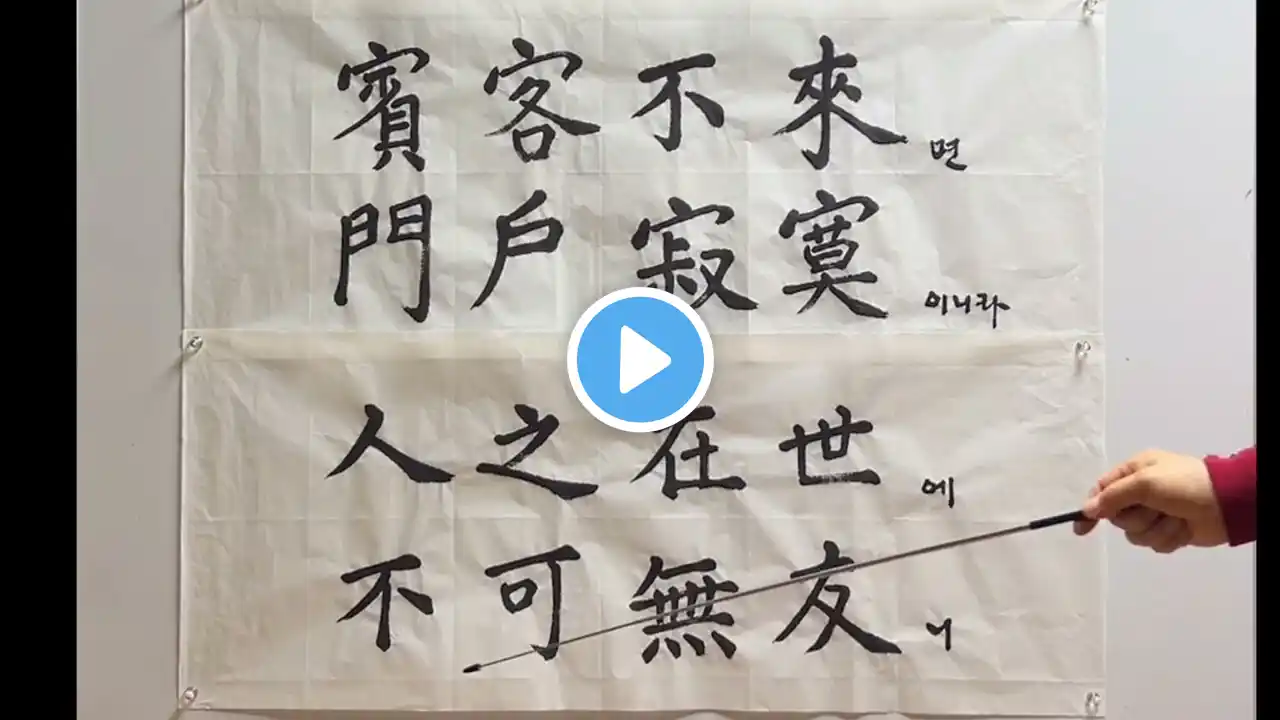 賓客不來면
門戶寂寞이니라
人之在世에
不可無友니